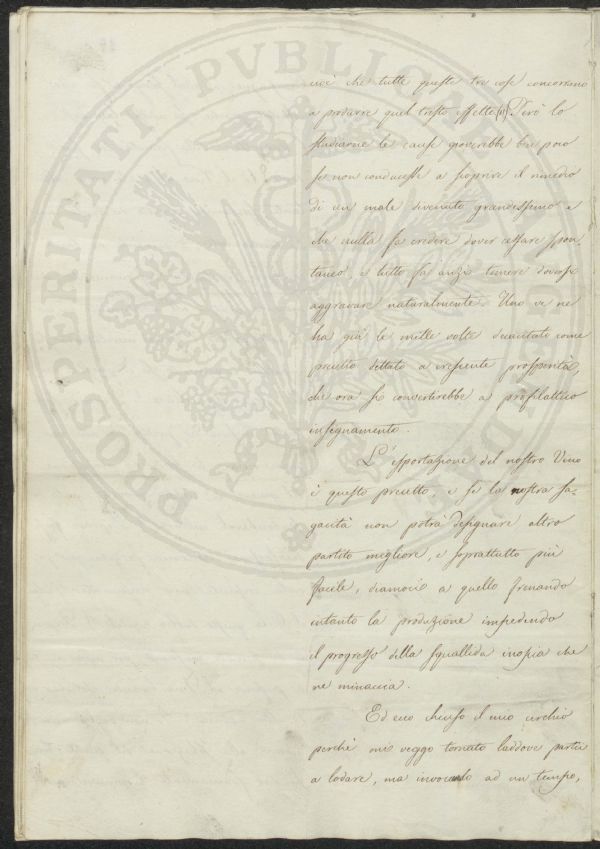 PROSPERITATI PVBLICAE
cioè che tutte queste tre cose concorrano
a produrre quel tristo effetto (11) Però lo
studiarne le cause gioverebbe ben poco
se non conducesse a scoprire il rimedio
di un male divenuto grandissimo e
che nulla fa credere dover cessare spon-
taneo, e tutto fa anzi temere doversi
aggravare naturalmente. Uno ve ne
ha già le mille volte decantato come
precetto dettato a crescente prosperità,
che ora si convertirebbe a profilattico
insegnamento.
L'esportazione del nostro Vino
è questo precetto, e se la nostra sa-
gacità non potrà designare altro
partito migliore, e soprattutto più
facile, diamoci a quello frenando
intanto la produzione impedendo
il progresso della squallida inopia che
ne minaccia.
Ed ecco chiuso il mio cerchio
perchè mi veggo tornato laddove partii
a lodare, ma invocando ad un tempo,